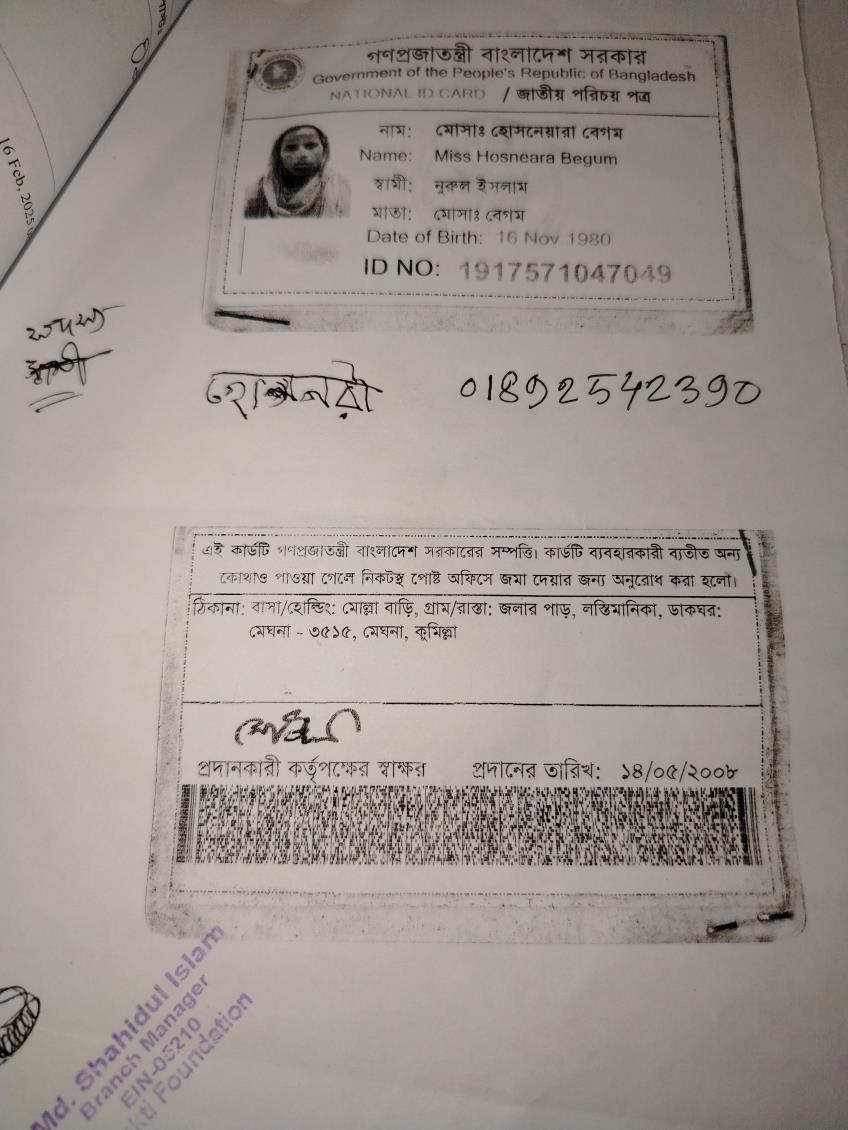 16 Feb, 2025
গণপ্রজাতন্ত্রী বাংলাদেশ সরকার
Government of the People's Republic of Bangladesh
NATIONAL ID CARD / জাতীয় পরিচয় পত্র
নাম: মোসাঃ হোসনেয়ারা বেগম
Name: Miss Hosneara Begum
স্বামী: নুরুল ইসলাম
মাতা: মোসাঃ বেগম
Date of Birth: 16 Nov 1980
ID NO: 1917571047049
সদস্য
01892542390
এই কার্ডটি গণপ্রজাতন্ত্রী বাংলাদেশ সরকারের সম্পত্তি। কার্ডটি ব্যবহারকারী ব্যতীত অন্য
কোথাও পাওয়া গেলে নিকটস্থ পোষ্ট অফিসে জমা দেয়ার জন্য অনুরোধ করা হলো।
ঠিকানা: বাসা/হোল্ডিং: মোল্লা বাড়ি, গ্রাম/রাস্তা: জলার পাড়, লস্তিমানিকা, ডাকঘর:
মেঘনা - ৩৫১৫, মেঘনা, কুমিল্লা
প্রদানকারী কর্তৃপক্ষের স্বাক্ষর প্রদানের তারিখ: ১৪/০৫/২০০৮
Md. Shahidul Islam
Branch Manager
EIN-05210
Foundation